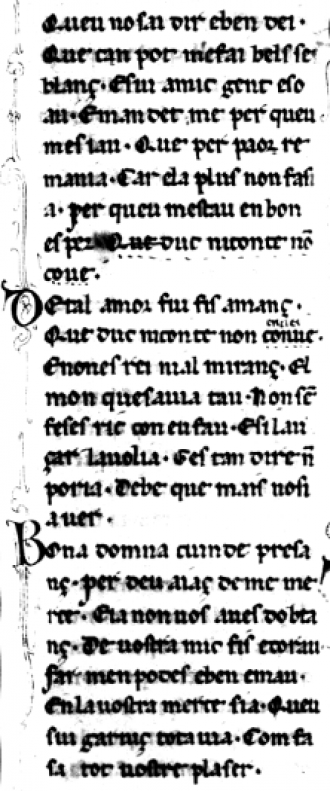 Queu nosai dir eben dei·
Que can pot mefai bels se
blanç· Esui amic gent eso
au· Eman det me per queu
mesiau· Que per paor re
mania· Car ela plus non fasi
a· per queu mestau en bon
esper Que duc niconte nō
coue·
De tal amor sui fis amanç·
enuies
Que duc niconte non conue·
Enones rei nial miranç· El
mon que sauia tau· Non sē
feses ric con eu fau· Esi lau
çar lauolia· Ges tan dire n̄
poria· Debe que mais nosi
auer·
Bona domna cuinde presa
nç· per deu aiaç de me me
rce· Eia non uos anes dobta
nç· De uostra mic fis ecorau
far men podes eben emau·
Enla uostra merce sia· Queu
sui garniç tota uia· Com fa
sa tot uostre plaser·